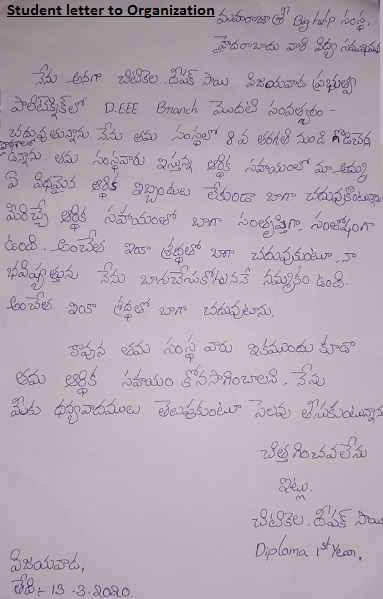 Student letter to Organization
మహారాజశ్రీ Big help సంస్థ,
హైదరాబాదు వారి దివ్య సముఖమునకు
నేను అనగా చిటికెల. దీపక్ సాయి విజయవాడ ప్రభుత్వ
పాలిటెక్నిక్‌లో D.EEE Branch మొదటి సంవత్సరం -
చదువుతున్నాను. నేను తమ సంస్థలో 8 వ తరగతి నుండి
ఉన్నాను. తమ సంస్థవారు ఇస్తున్న ఆర్థిక సహాయంలో మా
ఏ విధమైన ఆర్థిక ఇబ్బందులు లేకుండా బాగా చదువుకొంటున్నాను
మీరిచ్చే ఆర్థిక సహాయంలో బాగా సంతృప్తిగా, సంతోషంగా
ఉంది. అంచేత ఇంకా శ్రద్ధతో బాగా చదువుకుంటూ, నా
భవిష్యత్తును నేను బాగుచేసుకోగలననే నమ్మకం ఉంది.
అంచేత ఇంకా శ్రద్ధతో బాగా చదువుటాను.
కావున తమ సంస్థ వారు ఇకముందు కూడా
తమ ఆర్థిక సహాయం కొనసాగించాలని, నేను
మీకు ధన్యవాదములు తెలుపుకుంటూ సెలవు తీసుకుంటున్నాను
చిత్తగించవలెను
ఇట్లు.
చిటికెల. దీపక్ సాయి
Diploma 1st Year.
విజయవాడ,
తేది:- 13-3-2020.